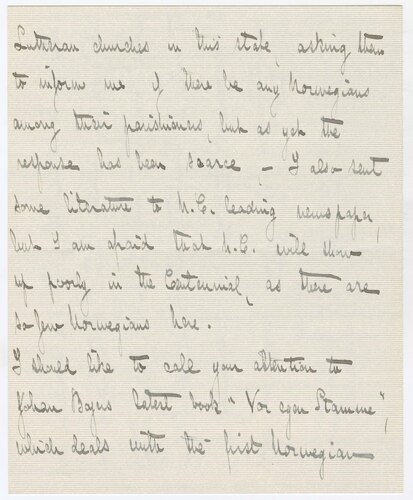 Lutheran churches in this state, asking them
to inform me if there be any Norwegians
among their parishioners, but as yet the
response has been scarce – I also sent
some literature to N.C. leading newspaper,
but I am afraid that N.C. will show
up poorly in the Centennial, as there are
so few Norwegians here.
I should like to call your attention to
Johan Bojers latest book "Vor egen Stamme",
which deals with the first Norwegian